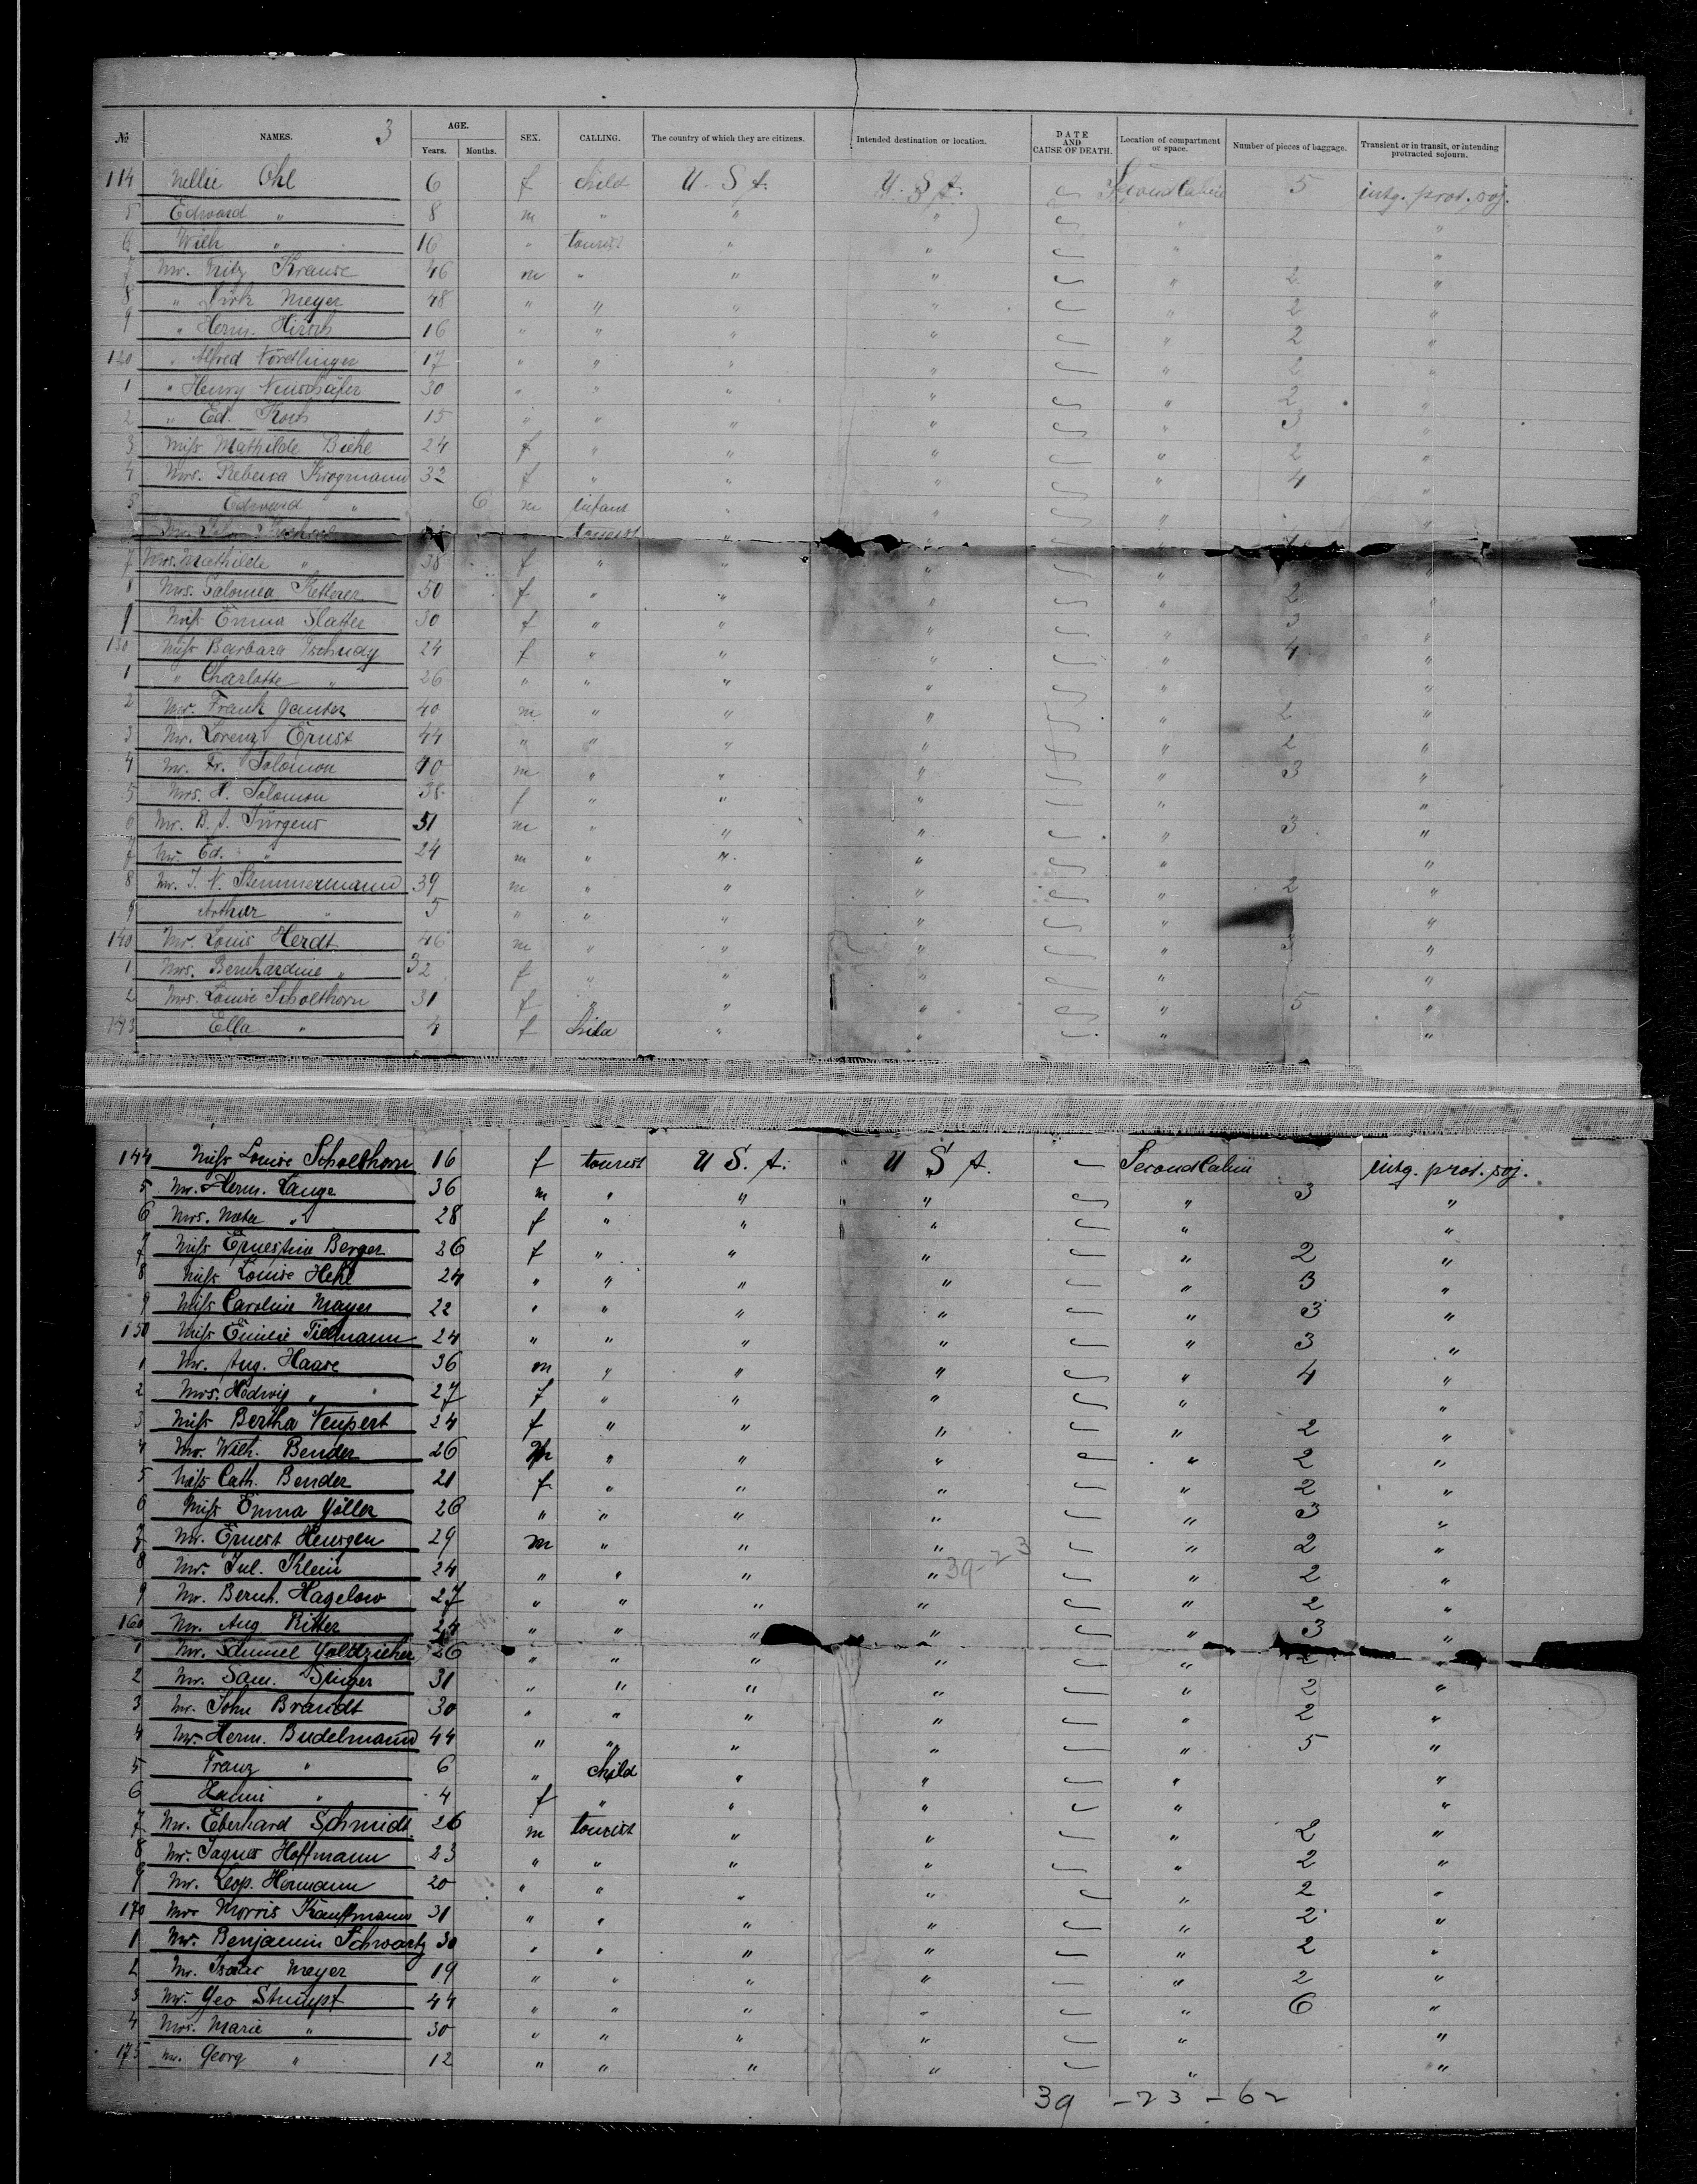 3
No. NAMES. AGE. Years. Months. SEX. CALLING. The country of which they are citizens. Intended destination or location. DATE AND CAUSE OF DEATH. Location of compartment or space. Number of pieces of baggage. Transient or in transit, or intending protracted sojourn.
114 Nellie Ohl 6 f child U. S A. U. S A. Second Cabin 5 intg. prot. soj.
5 Edward " 8 m " " " " "
6 Wilh " 16 " tourist " " " "
7 Mr. Fritz Krause 46 m " " " " 2 "
8 " Dirk Meyer 48 " " " " " 2 "
9 " Herm. Hirsch 16 " " " " " 2 "
120 " Alfred Nördlinger 17 " " " " " 2 "
1 " Henry Neuschäfer 30 " " " " " 2 "
2 " Ed. 15 " " " " " 3 "
3 Miss Mathilde Biehl 24 f " " " " 2 "
4 Mrs. Rebecca Krogmann 32 f " " " " 4 "
5 Edward " 6 m infant " " " "
Mr. tourist " " "
7 Mrs. Mathilde " 38 f " " " " "
8 Mrs. Salomea Ketterer 50 f " " " " 2 "
9 Miss Emma Slatter 30 f " " " " 3 "
130 Miss Barbara Tschudy 24 f " " " " 4 "
1 " Charlotte " 26 " " " " " "
2 Mr. Frank Ganter 40 m " " " " 2 "
3 Mr. Lorenz Ernst 44 " " " " " 2 "
4 Mr. Fr. Solomon 40 m " " " " 3 "
5 Mrs. H. Solomon 38 f " " " " "
6 Mr. B. A. Jürgens 51 m " " " " 3 "
7 Mr. Ed. " 24 m " " " " "
8 Mr. J. N. Stemmermann 39 m " " " " 2 "
9 Arthur " 5 " " " " " "
140 Mr. Louis Herdt 46 m " " " " 3 "
1 Mrs. Bernhardine " 32 f " " " " "
2 Mrs. Louise Scholthorn 31 f " " " " 5 "
143 Ella " 4 f child " " " "
144 Miss Louise Scholthorn 16 f tourist U S. A. U S A. Second Cabin intg. prot. soj.
5 Mr. Herm. Lange 36 m " " " " 3 "
6 Mrs. Meta " 28 f " " " " "
7 Miss Ernestine Berger 26 f " " " " 2 "
8 Miss Louise Hehl 24 " " " " " 3 "
9 Miss Caroline Mayer 22 " " " " " 3 "
150 Miss Emilie Tillmann 24 " " " " " 3 "
1 Mr. Aug. Haase 36 m " " " " 4 "
2 Mrs. Hedwig " 27 f " " " " "
3 Miss Bertha Neupert 24 f " " " " 2 "
4 Mr. Wilh. Bender 26 m " " " " 2 "
5 Miss Cath. Bender 21 f " " " " 2 "
6 Miss Emma Göller 26 " " " " " 3 "
7 Mr. Ernest Heusgen 29 m " " " " 2 "
8 Mr. Jul. Klein 24 " " " " 39-23 " 2 "
9 Mr. Bernh. Hagelow 27 " " " " " 2 "
160 Mr. Aug Ritter 24 " " " " " 3 "
1 Mr. Samuel Goldzieher 26 " " " " " 2 "
2 Mr. Sam. Singer 31 " " " " " 2 "
3 Mr. John Brandt 30 " " " " " 2 "
4 Mr. Herm. Budelmann 44 " " " " " 5 "
5 Franz " 6 " child " " " "
6 Hanni " 4 f " " " " "
7 Mr. Eberhard Schmidt 26 m tourist " " " 2 "
8 Mr. Jaques Hoffmann 23 " " " " " 2 "
9 Mr. Leop. Hermann 20 " " " " " 2 "
170 Mr. Morris Kauffmann 31 " " " " " 2 "
1 Mr. Benjamin Schwartz 30 " " " " " 2 "
2 Mr. Isaac Meyer 19 " " " " " 2 "
3 Mr. Geo Stumpf 44 " " " " " 6 "
4 Mrs. Marie " 30 " " " " " "
175 Mr. Georg " 12 " " " " " "
39 - 23 - 62